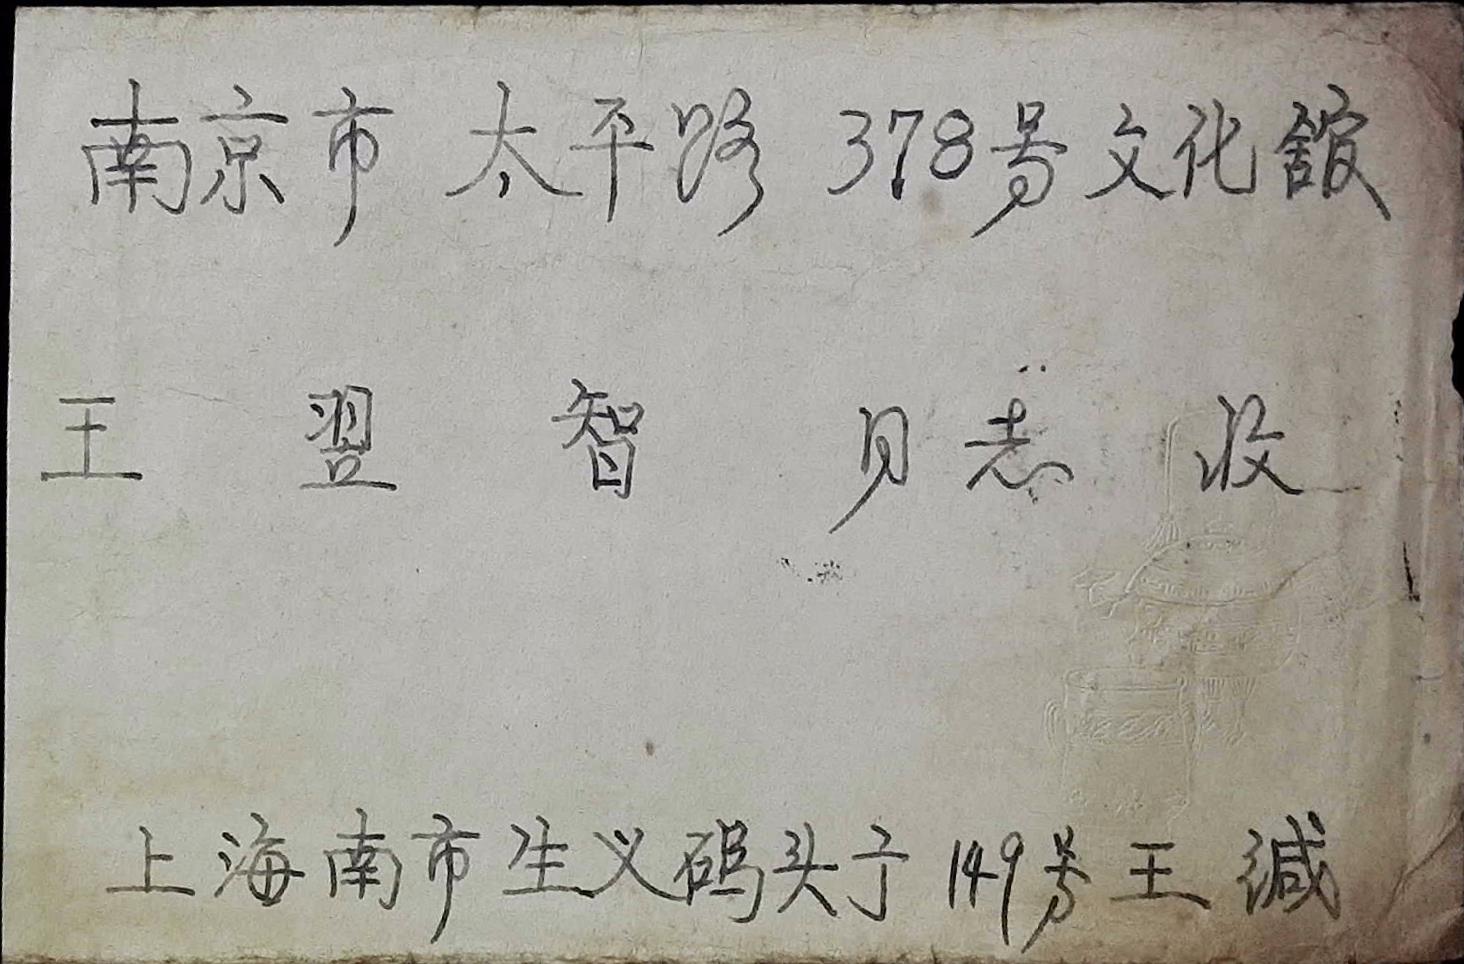 南京市 太平路 378号文化舘
王翌智 同志 收
上海南市生义码头于149号王缄